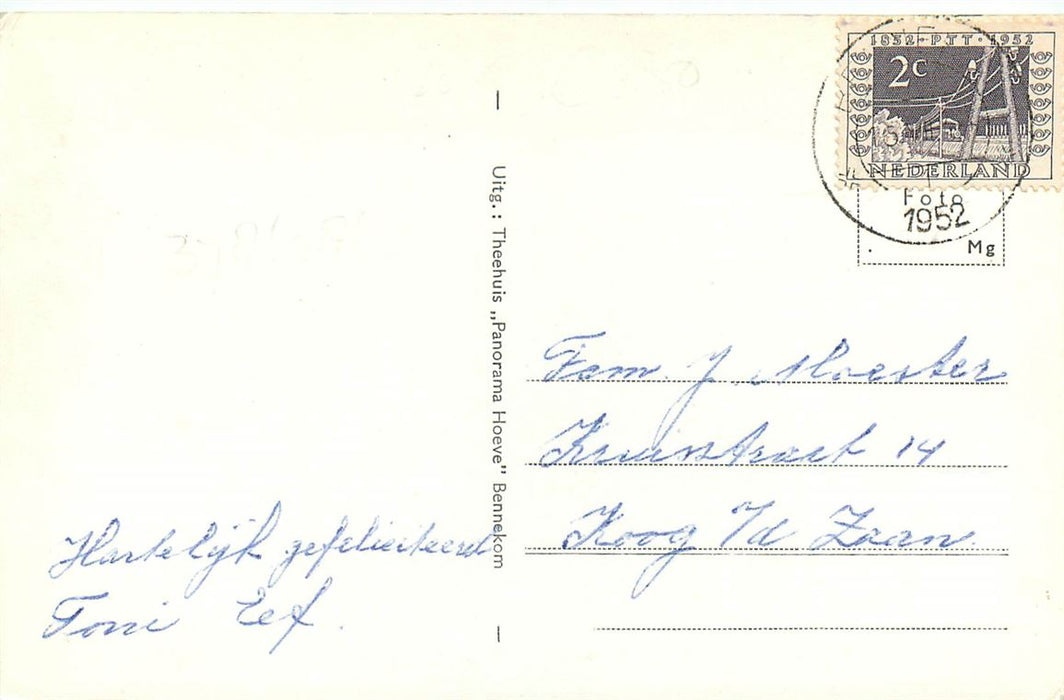 1852 · PTT · 1952
2c
NEDERLAND
Foto
1952
Mg
Uitg.: Theehuis „Panorama Hoeve" Bennekom
Fam. J. Moester
Kruisstraat 14
Koog a/d Zaan
Hartelijk gefeliciteerd
Toni Eef.